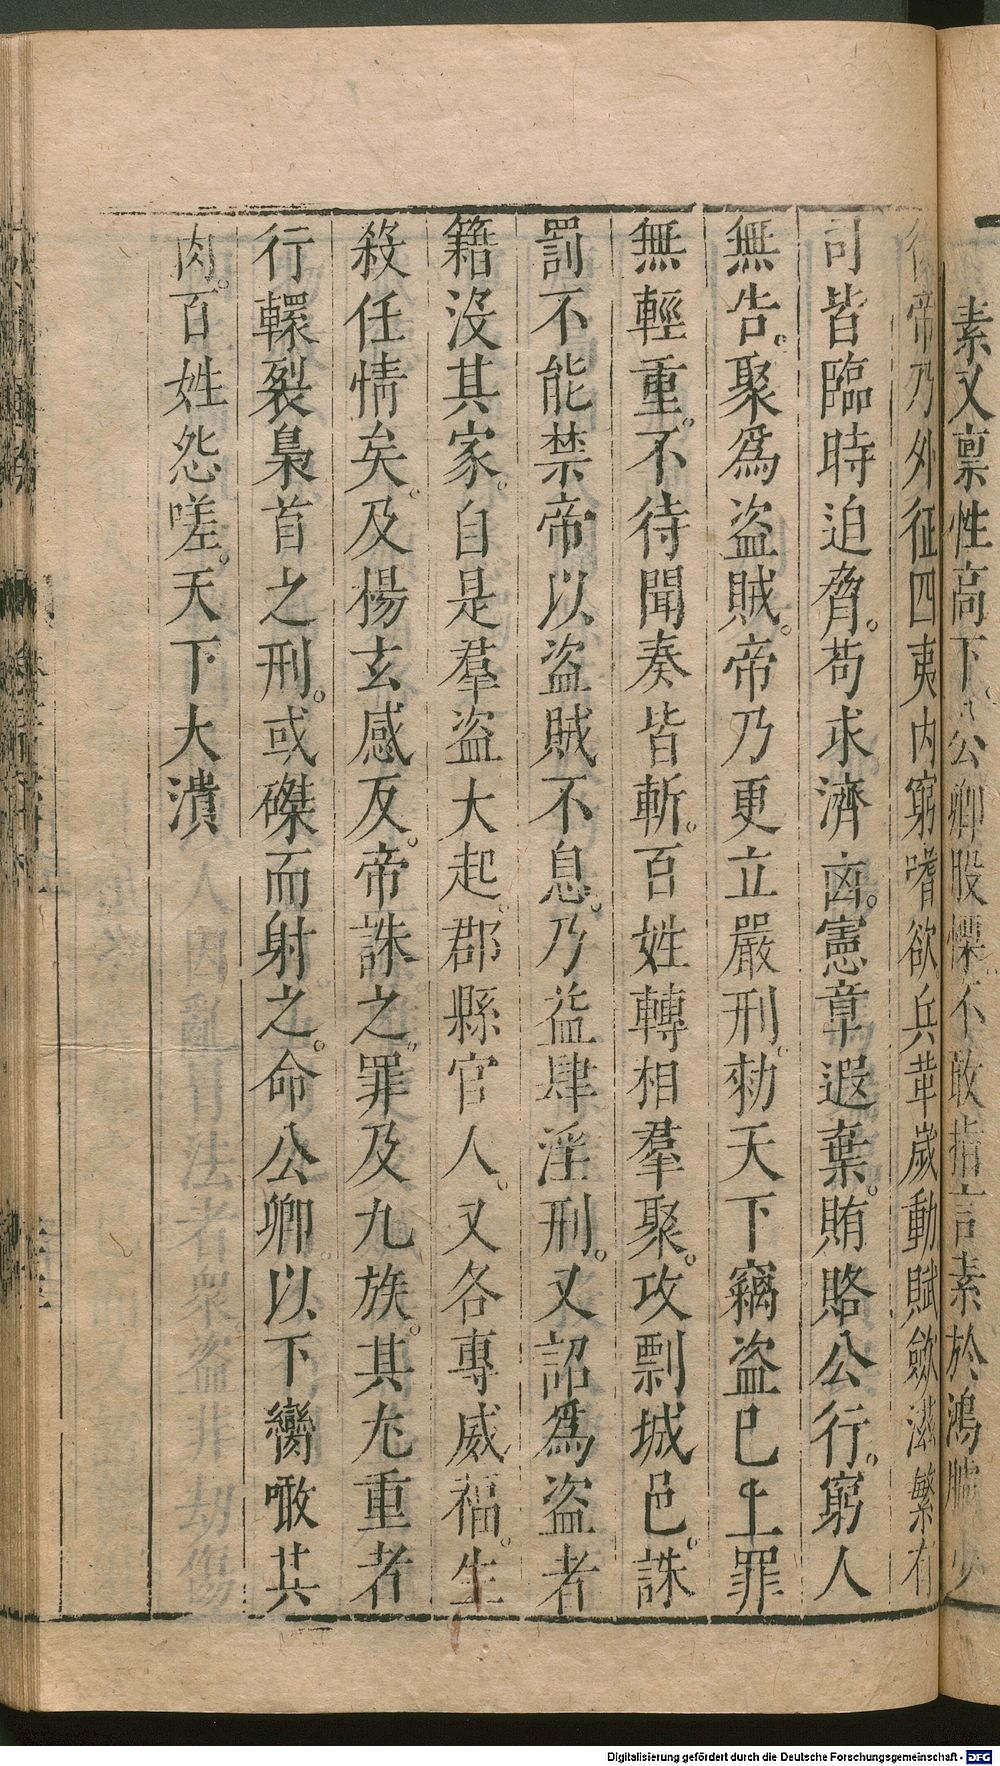 素又稟性高下。公卿股慄。不敢指言素於鴻臚少
後帝乃外征四夷内窮嗜欲兵革歲動賦斂滋繁有
司皆臨時迫脅。苟求濟凾。憲章遐棄。賄賂公行。窮人
無告。聚爲盜賊。帝乃更立嚴刑。勑天下竊盜已上罪
無輕重。不待聞奏皆斬。百姓轉相羣聚。攻剽城邑。誅
罰不能禁帝以盜賊不息。乃益肆淫刑。又詔爲盜者
籍沒其家。自是羣盜大起。郡縣官人。又各專威福。生
殺任情矣。及楊玄感反。帝誅之。罪及九族。其尤重者
行轘裂梟首之刑。或磔而射之。命公卿以下臠噉其
肉。百姓怨嗟。天下大潰
Digitalisierung gefördert durch die Deutsche Forschungsgemeinschaft - DFG